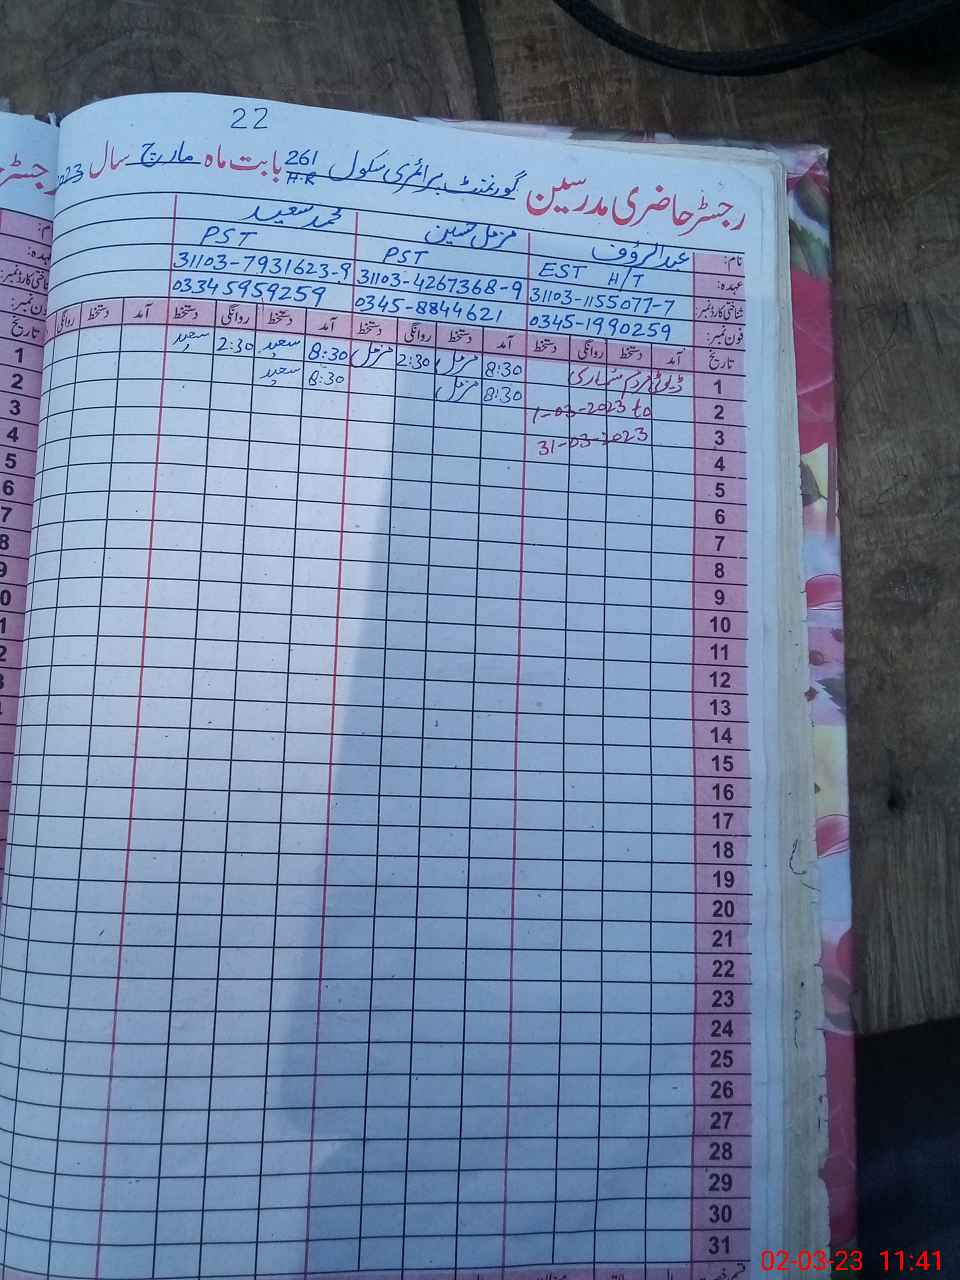 22
رجسٹر حاضری مدرسین گورنمنٹ پرائمری سکول 261 H.R بابت ماہ مارچ سال 2023
نام: عبدالرؤف مزمل حسین محمد سعید
عہدہ: EST H/T PST PST
شناختی کارڈ نمبر: 31103-1155077-7 31103-4267368-9 31103-7931623-9
فون نمبر: 0345-1990259 0345-8844621 03345959259
تاریخ آمد دستخط روانگی دستخط آمد دستخط روانگی دستخط آمد دستخط روانگی دستخط آمد دستخط روانگی
1 ڈیوٹی مردم شماری 8:30 مزمل 2:30 مزمل 8:30 سعید 2:30 سعید
2 1-03-2023 to 8:30 مزمل 8:30 سعید
3 31-03-2023
4
5
6
7
8
9
10
11
12
13
14
15
16
17
18
19
20
21
22
23
24
25
26
27
28
29
30
31
02-03-23 11:41